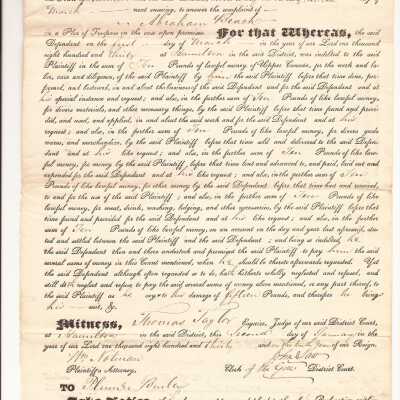 March next ensuing, to answer the complaint of
Abraham
in a Plea of Trespass in the case upon promises For that Whereas, the said
Defendant on the first day of March in the year of our Lord one thousand
eight hundred and thirty at Hamilton in the said District, was indebted to the said
Plaintiff in the sum of Ten Pounds of lawful money of Upper Canada, for the work and la-
bor, care and diligence, of the said Plaintiff by him the said Plaintiff, before that time done, per-
formed, and bestowed, in and about the business of the said Defendant and for the said Defendant and at
his special instance and request; and also, in the further sum of Ten Pounds of like lawful money,
for divers materials, and other necessary things, by the said Plaintiff before that time found and provi-
ded, and used, and applied, in and about the said work and for the said Defendant and at his like
request; and also, in the further sum of Ten Pounds of like lawful money, for divers goods
wares, and merchandizes, by the said Plaintiff before that time sold and delivered to the said Defen-
dant and at his like request; and also, in the further sum of Ten Pounds of like law-
ful money, for money by the said Plaintiff before that time lent and advanced to, and paid, laid out and
expended for the said Defendant and at his like request; and also, in the further sum of Ten
Pounds of like lawful money, for other money by the said Defendant before that time had and received,
to and for the use of the said Plaintiff; and also, in the further sum of Ten Pounds of like lawful
money, for meat, drink, washing, lodging, and other necessaries, by the said Plaintiff before that
time found and provided for the said Defendant and at his like request; and also, in the further
sum of Ten Pounds of like lawful money, on an account on the day and year last aforesaid, sta-
ted and settled between the said Plaintiff and the said Defendant; and being so indebted he
the said Defendant then and there undertook and promised the said Plaintiff to pay him the said
several sums of money in this Count mentioned, when he should be thereto afterwards requested. Yet
the said Defendant although often requested so to do, hath hitherto wholly neglected and refused, and
still doth neglect and refuse to pay the said several sums of money above mentioned, or any part thereof, to
the said Plaintiff or his damage of fifteen Pounds, and therefore he brings
his suit, &c.
Witness, Thomas Taylor Esquire, Judge of our said District Court,
at Hamilton in the District, this Second day of January in the
year of our Lord one thousand eight hundred and thirty and in the year of our Reign.
John Law
Plaintiffs Attorney, Clerk of the Gore District Court.
TO
Take Notice